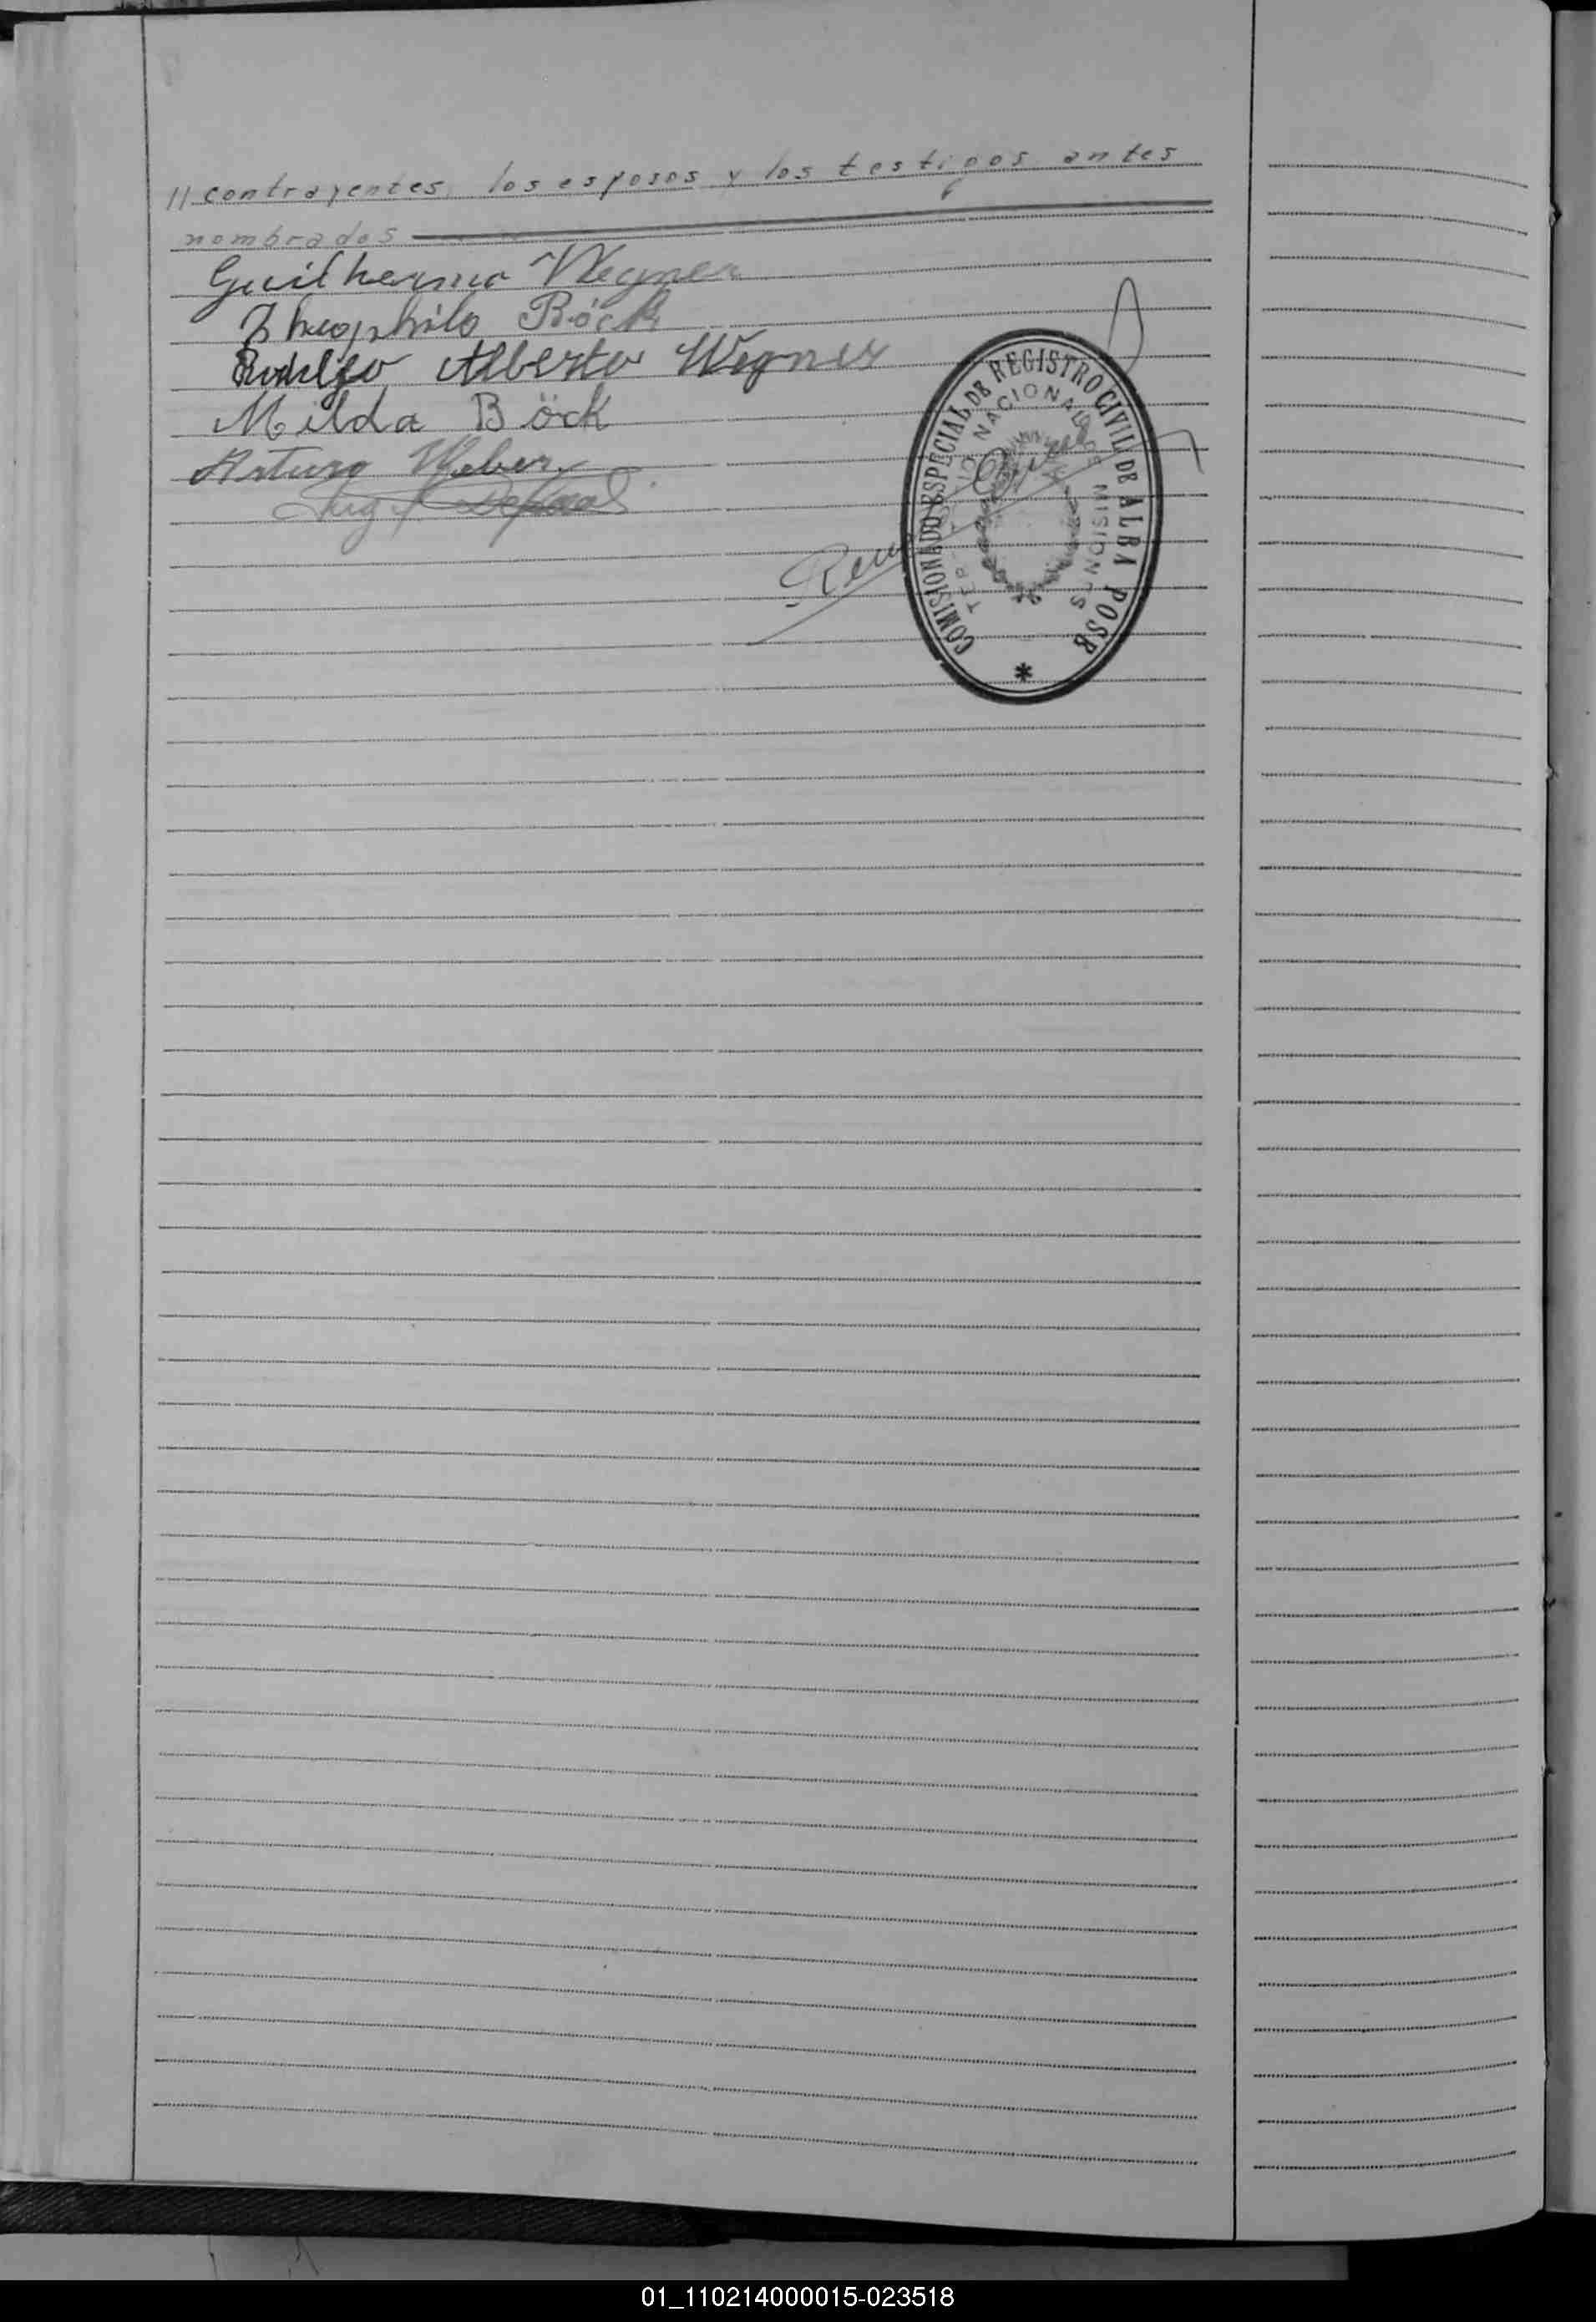 // contrayentes, los esposos y los testigos antes
nombrados
Guilhermo Wegner
Theophilo Böck
Rodolfo Alberto Wegner
Milda Böck
Arturo Weber
COMISIONADO ESPECIAL DE REGISTRO CIVIL DE ALBA POSE
NACIONAL DE MISIONES
*
01_110214000015-023518